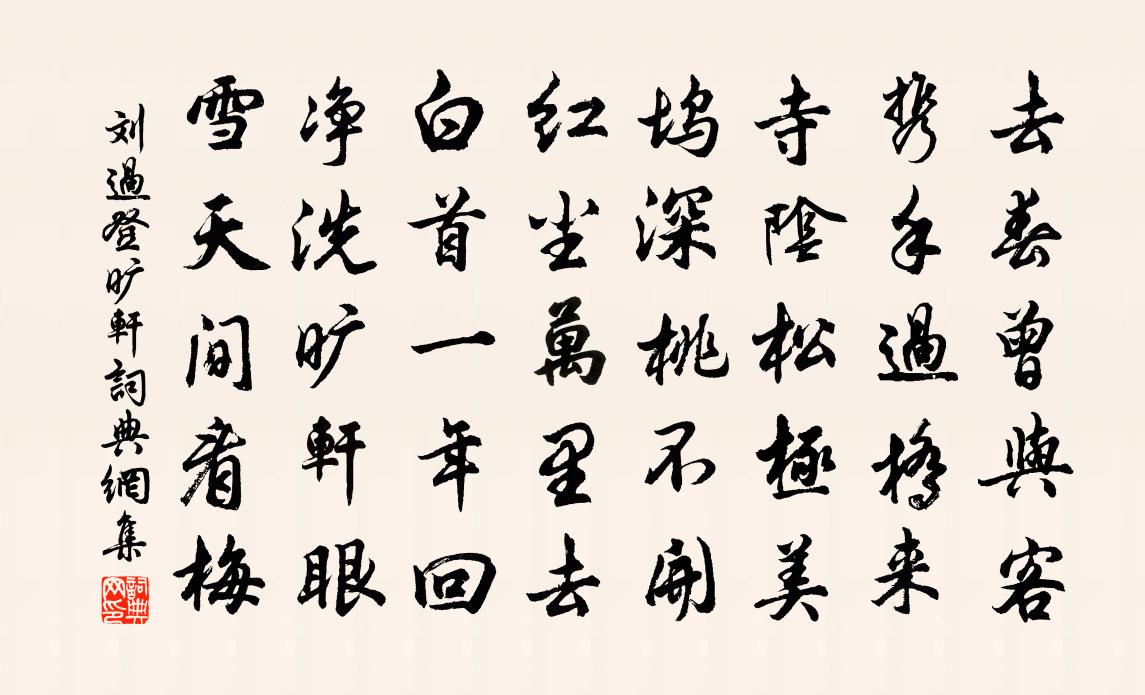 去春曾與客
携手過橋来
寺陰松極美
坞深桃不開
红尘萬里去
白首一年回
净洗旷軒眼
雪天间看梅
刘過登旷軒詞典網集
詞典
网印